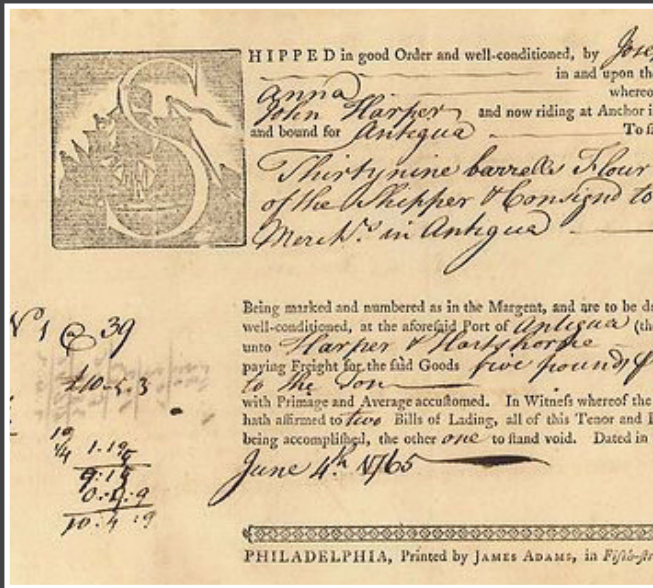 SHIPPED in good Order and well-conditioned, by Jose
in and upon the
Anna whereo
John Harper and now riding at Anchor i
and bound for Antegua To
Thirty nine barrells Flour
of the Shipper & Consign'd to
Merch.ts in Antegua
Being marked and numbered as in the Margent, and are to be
well-conditioned, at the aforesaid Port of Antegua (th
unto Harper & Hartshorne
paying Freight for the said Goods five pounds
to the Ton
with Primage and Average accustomed. In Witness whereof the
hath affirmed to two Bills of Lading, all of this Tenor and
being accomplished, the other one to stand void. Dated in
June 4th 1765
No 1 @ 39
£10-5.3
10:4:9
PHILADELPHIA, Printed by JAMES ADAMS, in